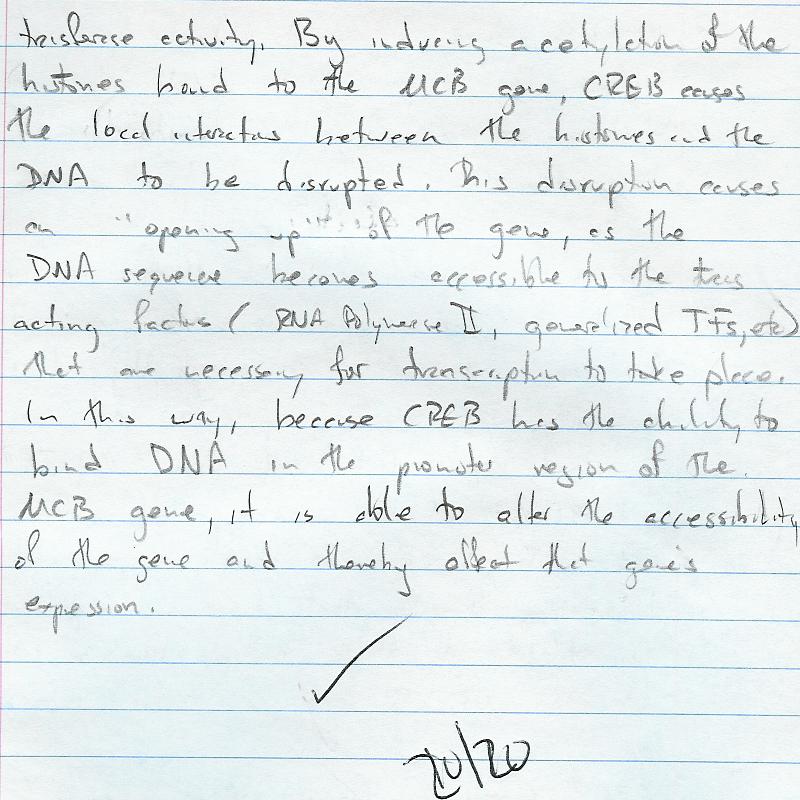 trasferase activity. By inducing acetylation of the
histones bound to the MCB gene, CREB causes
the local interactions between the histones and the
DNA to be disrupted. This disruption causes
an "opening up" of the gene, as the
DNA sequence becomes accessible to the trans
acting factors ( RNA Polymerase II, generalized TFs, etc)
that are necessary for transcription to take place.
In this way, because CREB has the ability to
bind DNA in the promoter region of the
MCB gene, it is able to alter the accessibility
of the gene and thereby affect that gene's
expression.
20/20